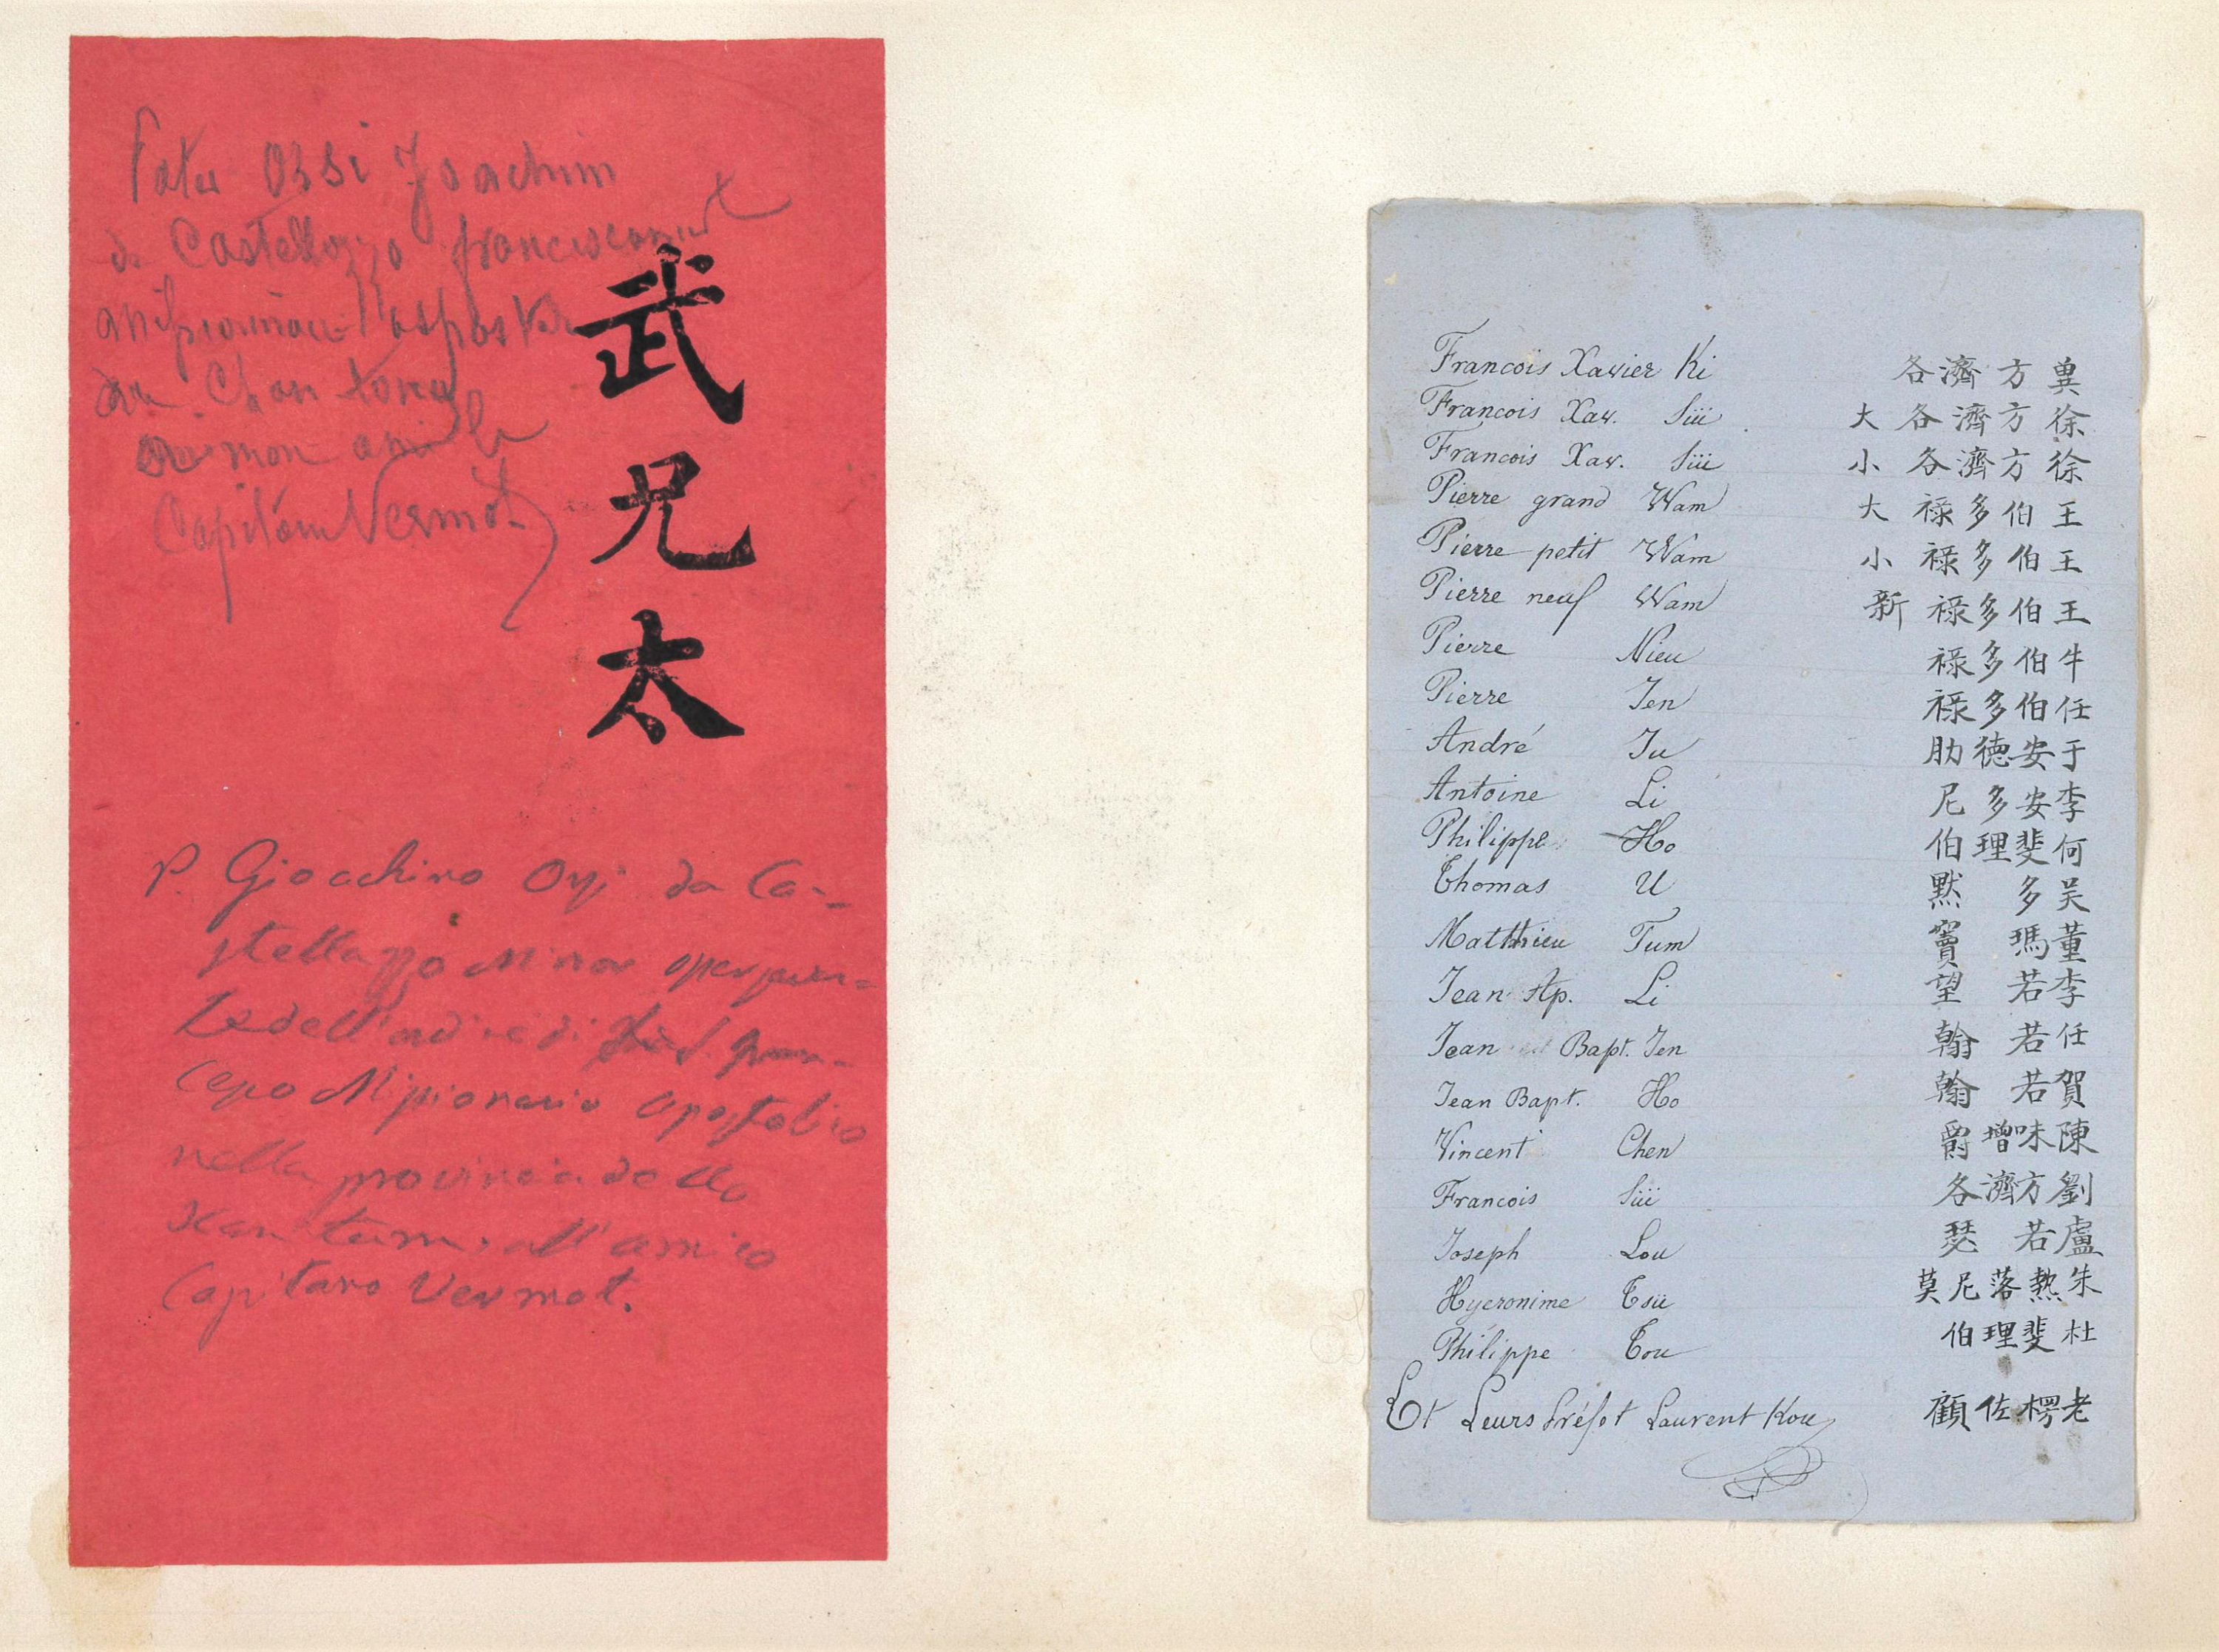 Pater Ossi Joachim
de Castellazzo franciscain
missionnaire apostol
du Chan tong
à mon ami le
Capitain Vermot
武
兄
太
P. Giocchino Ossi da Ca-
stellazzo Minor osservan-
te dell'ordine di S. Fran-
cesco Missionario Apostolico
nella provincia dello
Xan tum, all'amico
Capitano Vermot.
Francois Xavier Ki 各濟方冀
Francois Xav. Süi 大各濟方徐
Francois Xav. Süi 小各濟方徐
Pierre grand Wam 大祿多伯王
Pierre petit Wam 小祿多伯王
Pierre neuf Wam 新祿多伯王
Pierre Nieu 祿多伯牛
Pierre Jen 祿多伯任
André Ju 肋德安于
Antoine Li 尼多安李
Philippe Ho 伯理斐何
Thomas U 默多吴
Matthieu Tum 竇瑪董
Jean Ap. Li 望若李
Jean Bapt. Jen 翰若任
Jean Bapt. Ho 翰若賀
Vincent Chen 爵增味陳
Francois Süi 各濟方劉
Joseph Lou 瑟若盧
Hyeronime Tsü 莫尼落熱朱
Philippe Tou 伯理斐杜
Et Leurs Préfet Laurent Kou 顧佐楞老